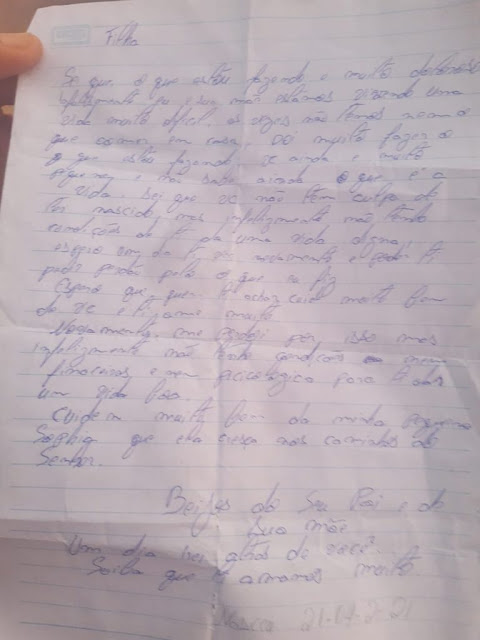 Filha
Sei que o que estou fazendo e muito doloroso
infelizmente eu e sua mãe estamos vivendo uma
vida muito dificil. as vezes não temos nem o
que comer em casa. Dói muito fazer o
o que estou fazendo, vc ainda e muito
pequena e não sabe ainda o que é a
vida. Sei que vc não tem culpa de
ter nascido, mas infelizmente não tenho
condições de t da uma vida digna,
espero um dia t ver novamente e pedir t
pedir perdão pelo o que eu fiz
Espero que quem t achar cuide muito bem
de vc e t ame muito
Novamente me perdoe por isso mas
infelizmente não tenho condições
financeiras e nem psicologica para t dar
um vida boa.
Cuidem muito bem da minha pequena
Sophia que ela cresça nos caminhos do
Senhor.
Beijos do Seu Pai e do
Sua mãe
Um dia irei atras de você.
Saiba que t amamos muito.
Nasceu 21-07-2021